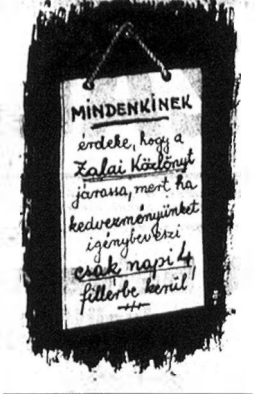 MINDENKINEK
érdeke, hogy a
Zalai Közlönyt
járassa, mert ha
kedvezményünket
igénybeveszi
csak napi 4
fillérbe kerül!